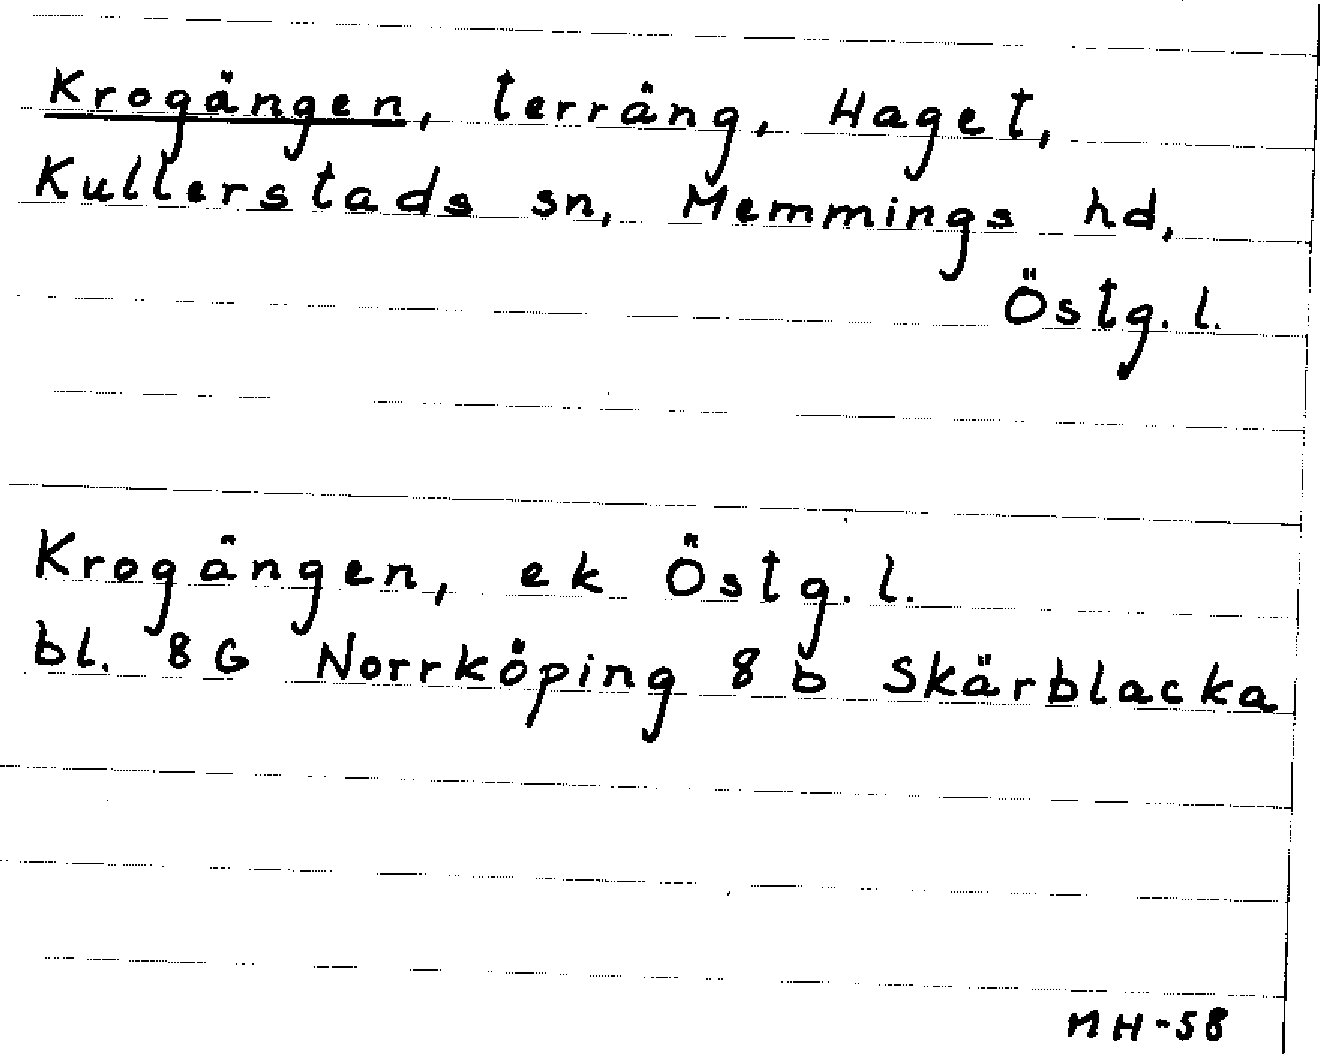 Krogängen, terräng, Haget,
Kullerstads sn, Memmings hd,
Östg. l.
Krogängen, ek Östg. l.
bl. 8G Norrköping 8 b Skärblacka
MH-58